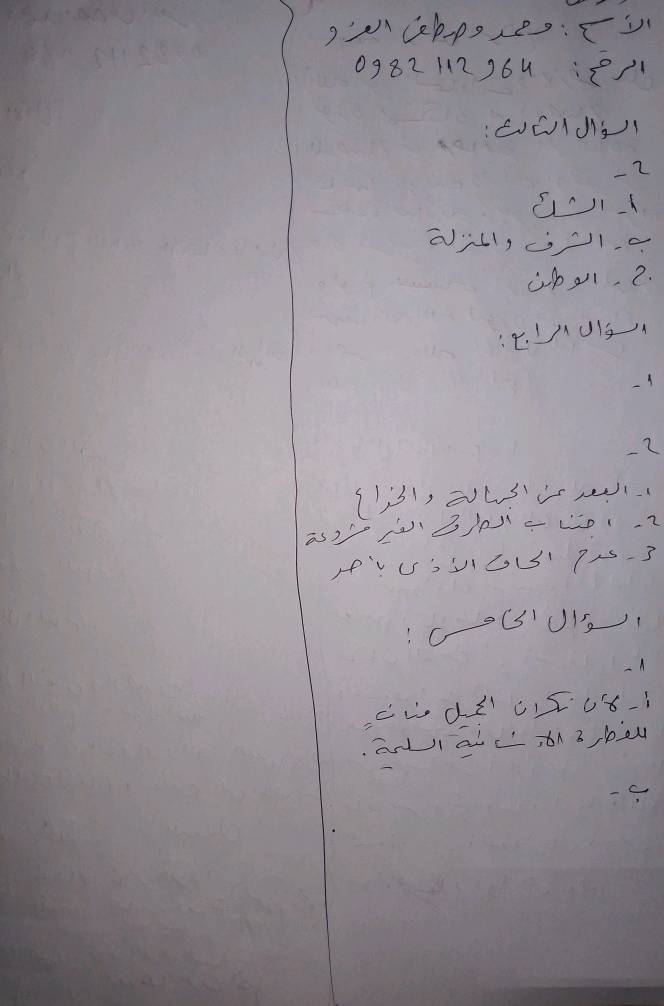 الأسم: محمد مصطفى العزو
الرقم: 0982112964
السؤال الثالث:
2-
أ- الشك
ب- الشرف والمنزلة
ج- الوطن
السؤال الرابع:
1-
2-
1- البعد عن الجهالة والخداع
2- اجتناب الطرق الغير مشروعة
3- عدم الحاق الأذى بأحد
السؤال الخامس:
1-
أ- لأن نكران الجميل منافٍ
للفطرة الانسانية السليمة.
ب-